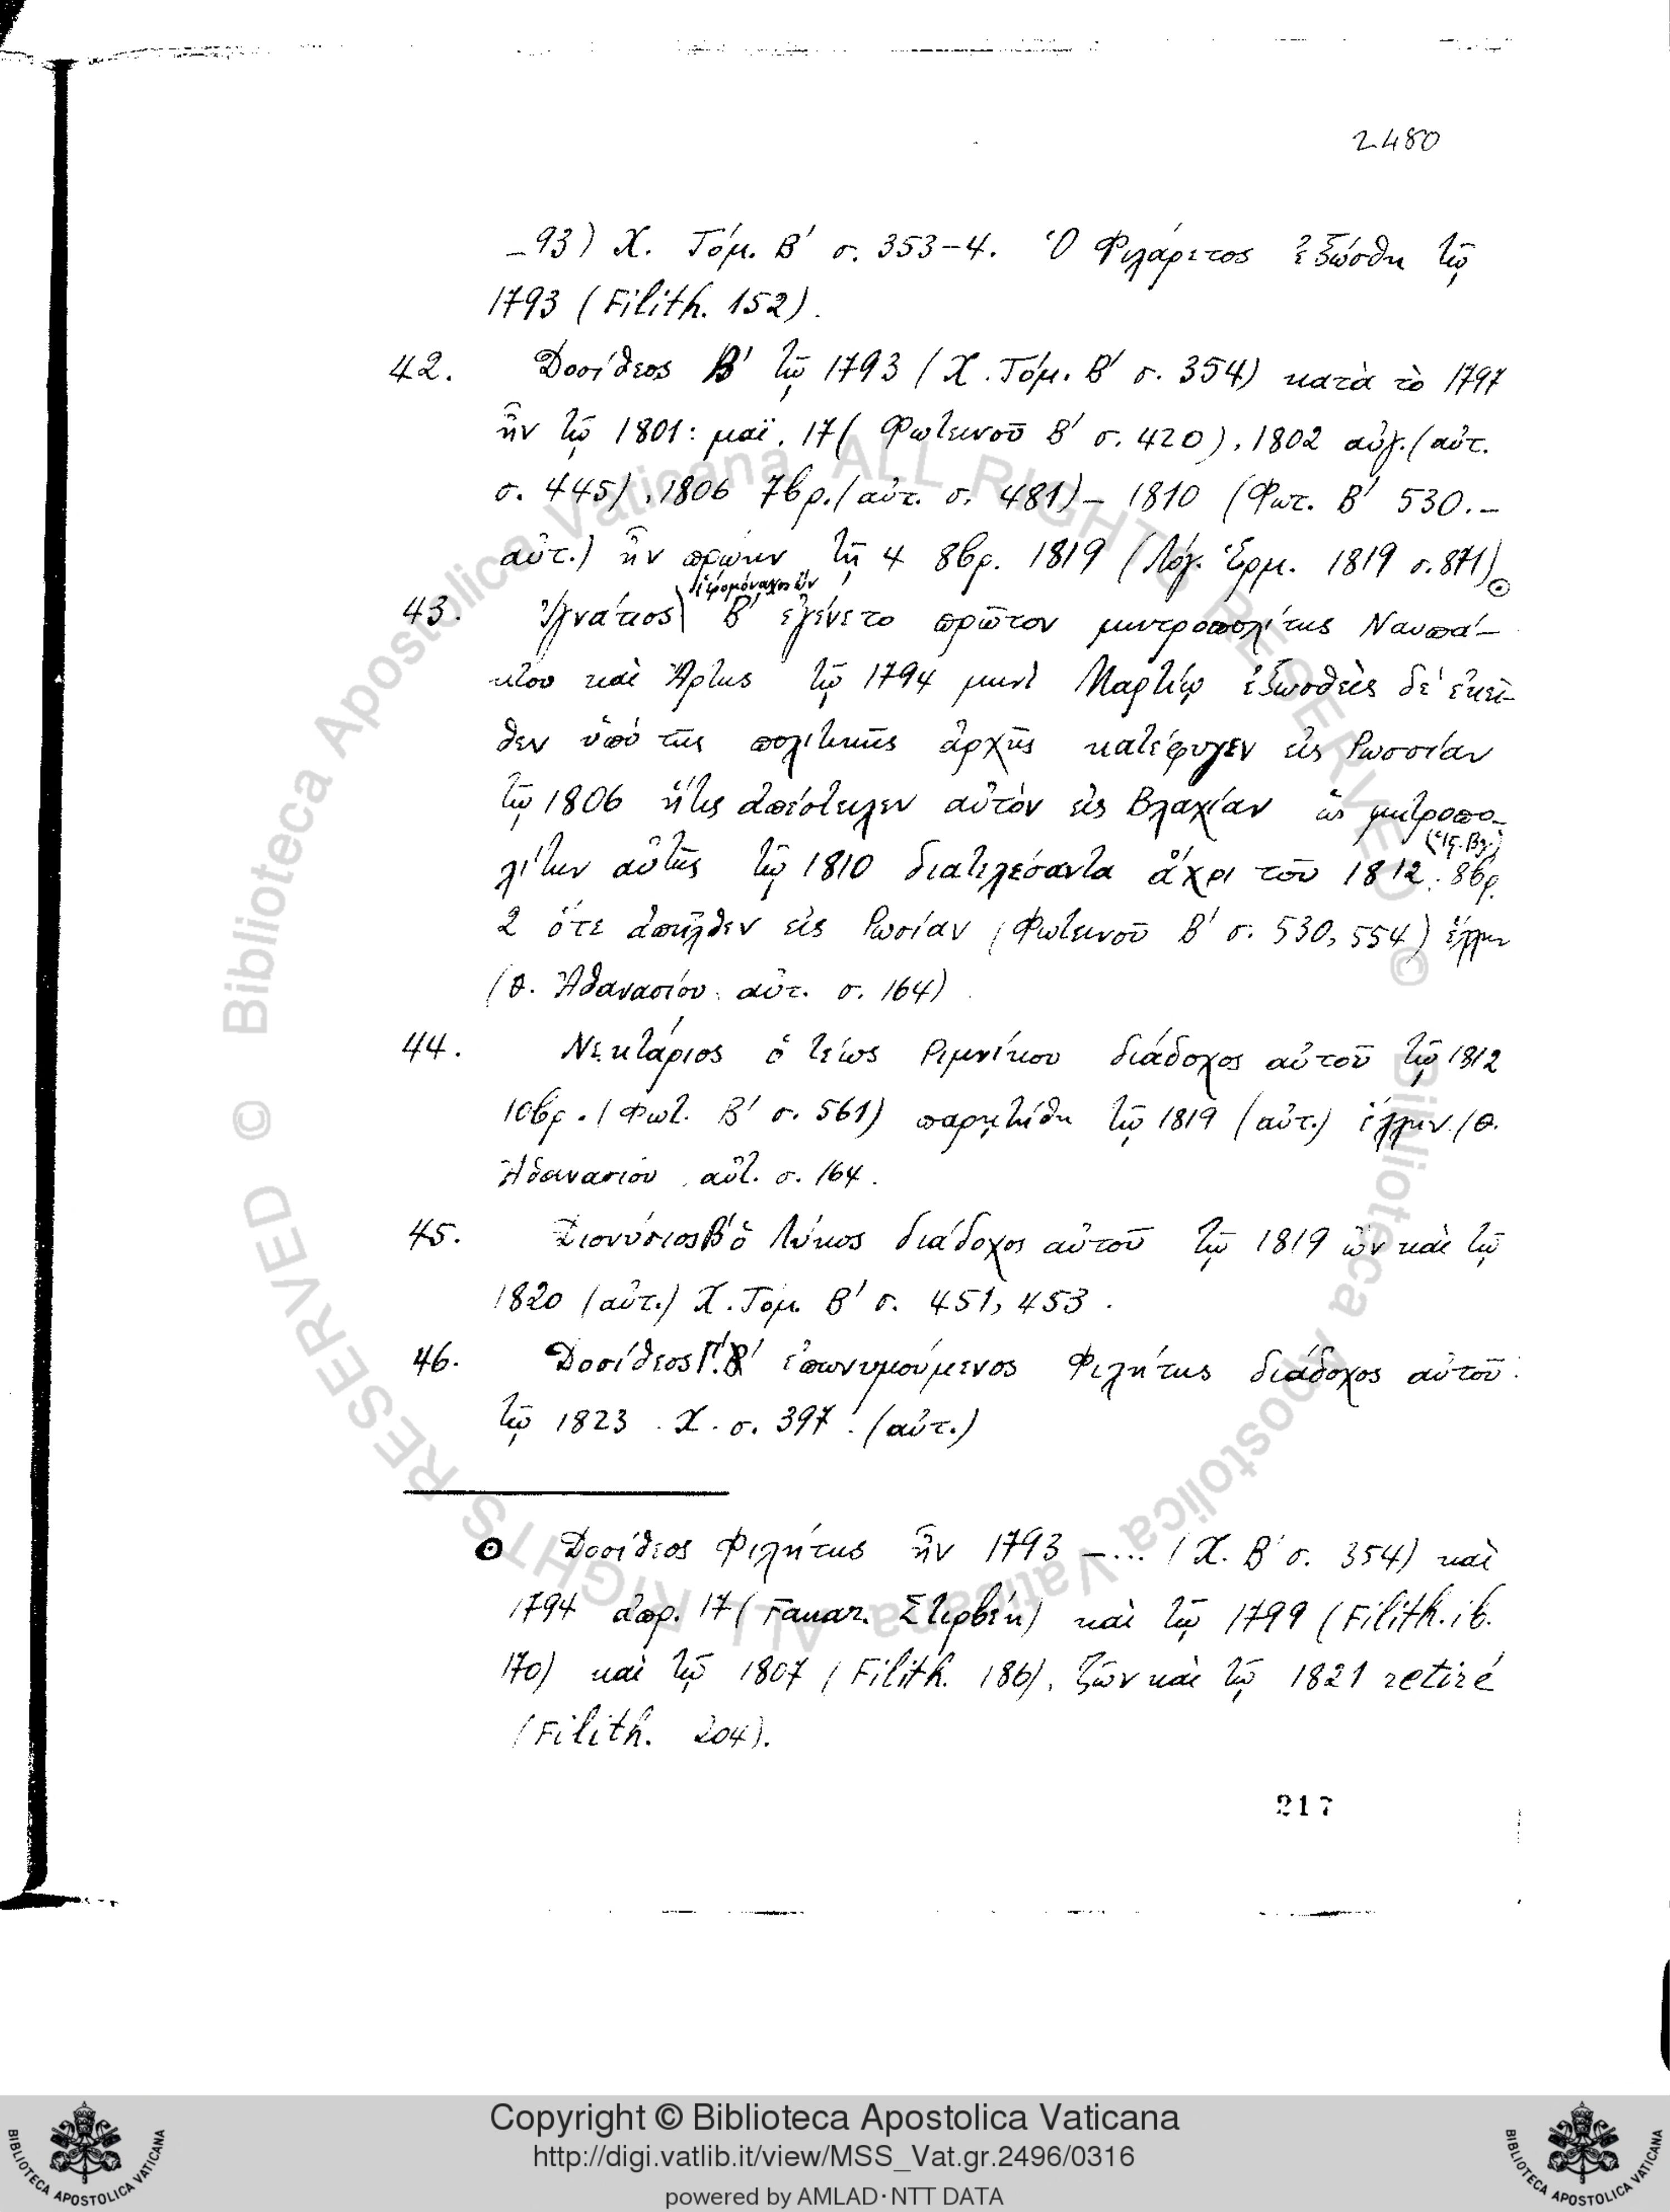 2480
_93) Χ. Τόμ. Β' σ. 353-4. Ὁ Φιλάρετος ἐξώσθη τῷ
1793 (Filith. 152).
42. Δοσίθεος Β' τῷ 1793 (Χ. Τόμ. Β' σ. 354) κατὰ τὸ 1797
ἦν τῷ 1801: μαϊ. 17 (Φωτεινοῦ Β' σ. 420), 1802 αὐγ. (αὐτ.
σ. 445), 1806 7βρ. (αὐτ. σ. 481) – 1810 (Φωτ. Β' 530. –
αὐτ.) ἦν πρώην τῇ 4 8βρ. 1819 (Λόγ. Ἑρμ. 1819 σ. 871) ⊙
ἱερομόναχος ὢν
43. Ἰγνάτιος Β' ἐγένετο πρῶτον μητροπολίτης Ναυπά-
κτου καὶ Ἄρτης τῷ 1794 μηνὶ Μαρτίῳ ἐξωσθεὶς δὲ ἐκεῖ-
θεν ὑπὸ τῆς πολιτικῆς ἀρχῆς κατέφυγεν εἰς Ρωσσίαν
τῷ 1806 ἥτις ἀπέστειλεν αὐτὸν εἰς Βλαχίαν ὡς μητροπο-
λίτην αὐτῆς τῷ 1810 διατελέσαντα ἄχρι τοῦ 1812. 8βρ.
2 ὅτε ἀπῆλθεν εἰς Ρωσίαν (Φωτεινοῦ Β' σ. 530, 554) ἕλλην
(Θ. Ἀθανασίου. αὐτ. σ. 164)
44. Νεκτάριος ὁ τέως Ριμνίκου διάδοχος αὐτοῦ τῷ 1812
10βρ. (Φωτ. Β' σ. 561) παρῃτήθη τῷ 1819 (αὐτ.) ἕλλην. (Θ.
Ἀθανασίου αὐτ. σ. 164.
45. Διονύσιος Β' ὁ Λύκος διάδοχος αὐτοῦ τῷ 1819 ὢν καὶ τῷ
1820 (αὐτ.) Χ. Τόμ. Β' σ. 451, 453.
46. Δοσίθεος Γ'. ἐπωνυμούμενος Φιλήτης διάδοχος αὐτοῦ
τῷ 1823. Χ. σ. 397. (αὐτ.)
⊙ Δοσίθεος Φιλήτης ἦν 1793 –... (Χ. Β' σ. 354) καὶ
1794 ἀπρ. 17 (Στιρβέη) καὶ τῷ 1799 (Filith. ib.
170) καὶ τῷ 1807 (Filith. 186), ζῶν καὶ τῷ 1821 retiré
(Filith. 204).
217
© Biblioteca Apostolica Vaticana ALL RIGHTS RESERVED
© Biblioteca Apostolica Vaticana ALL RIGHTS RESERVED
Copyright © Biblioteca Apostolica Vaticana
http://digi.vatlib.it/view/MSS_Vat.gr.2496/0316
powered by AMLAD·NTT DATA
BIBLIOTECA APOSTOLICA VATICANA
BIBLIOTECA APOSTOLICA VATICANA